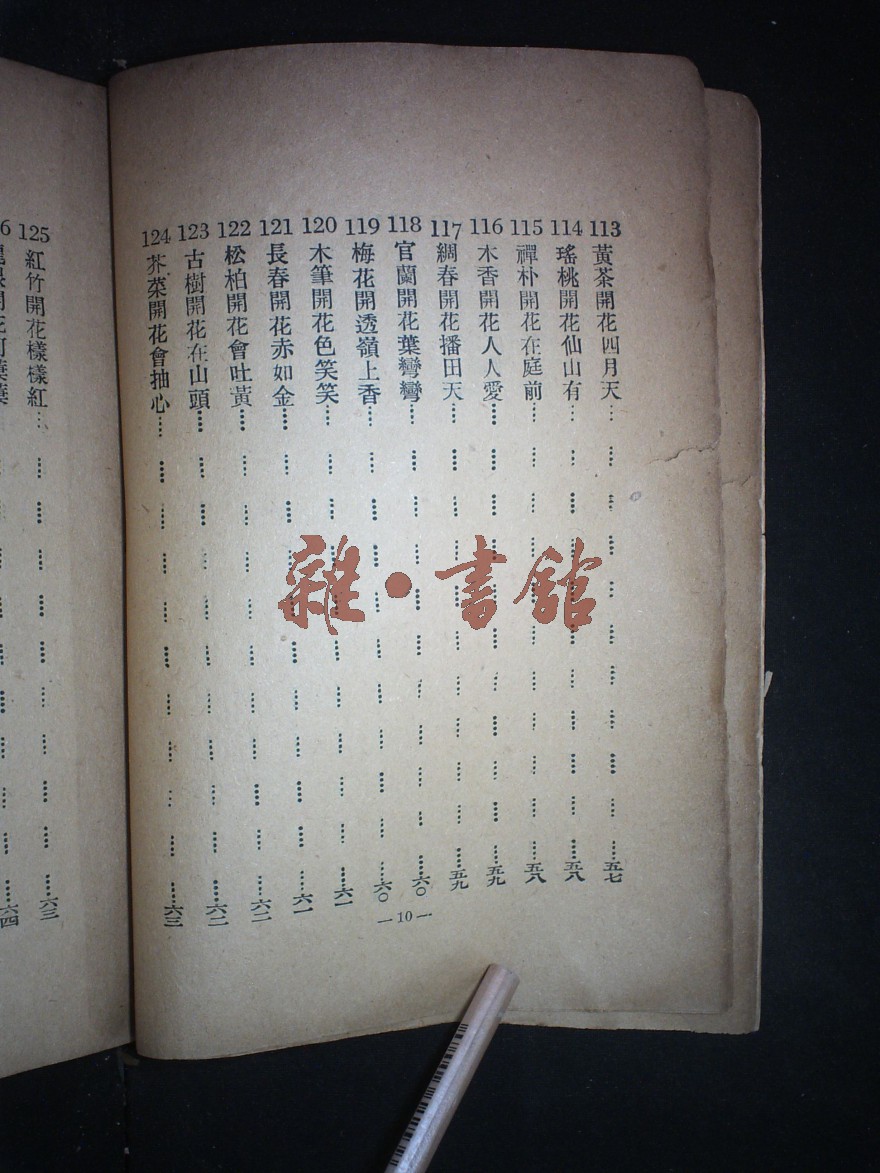 113 黃茶開花四月天 五七
114 瑤桃開花仙山有 五八
115 禪朴開花在庭前 五八
116 木香開花人人愛 五九
117 綢春開花播田天 五九
118 官蘭開花葉彎彎 六〇
119 梅花開透嶺上香 六〇
120 木筆開花色笑笑 六一
121 長春開花赤如金 六一
122 松柏開花會吐黃 六二
123 古樹開花在山頭 六二
124 芥菜開花會抽心 六三
—10—
125 紅竹開花樣樣紅 六三
六四
雜·書館